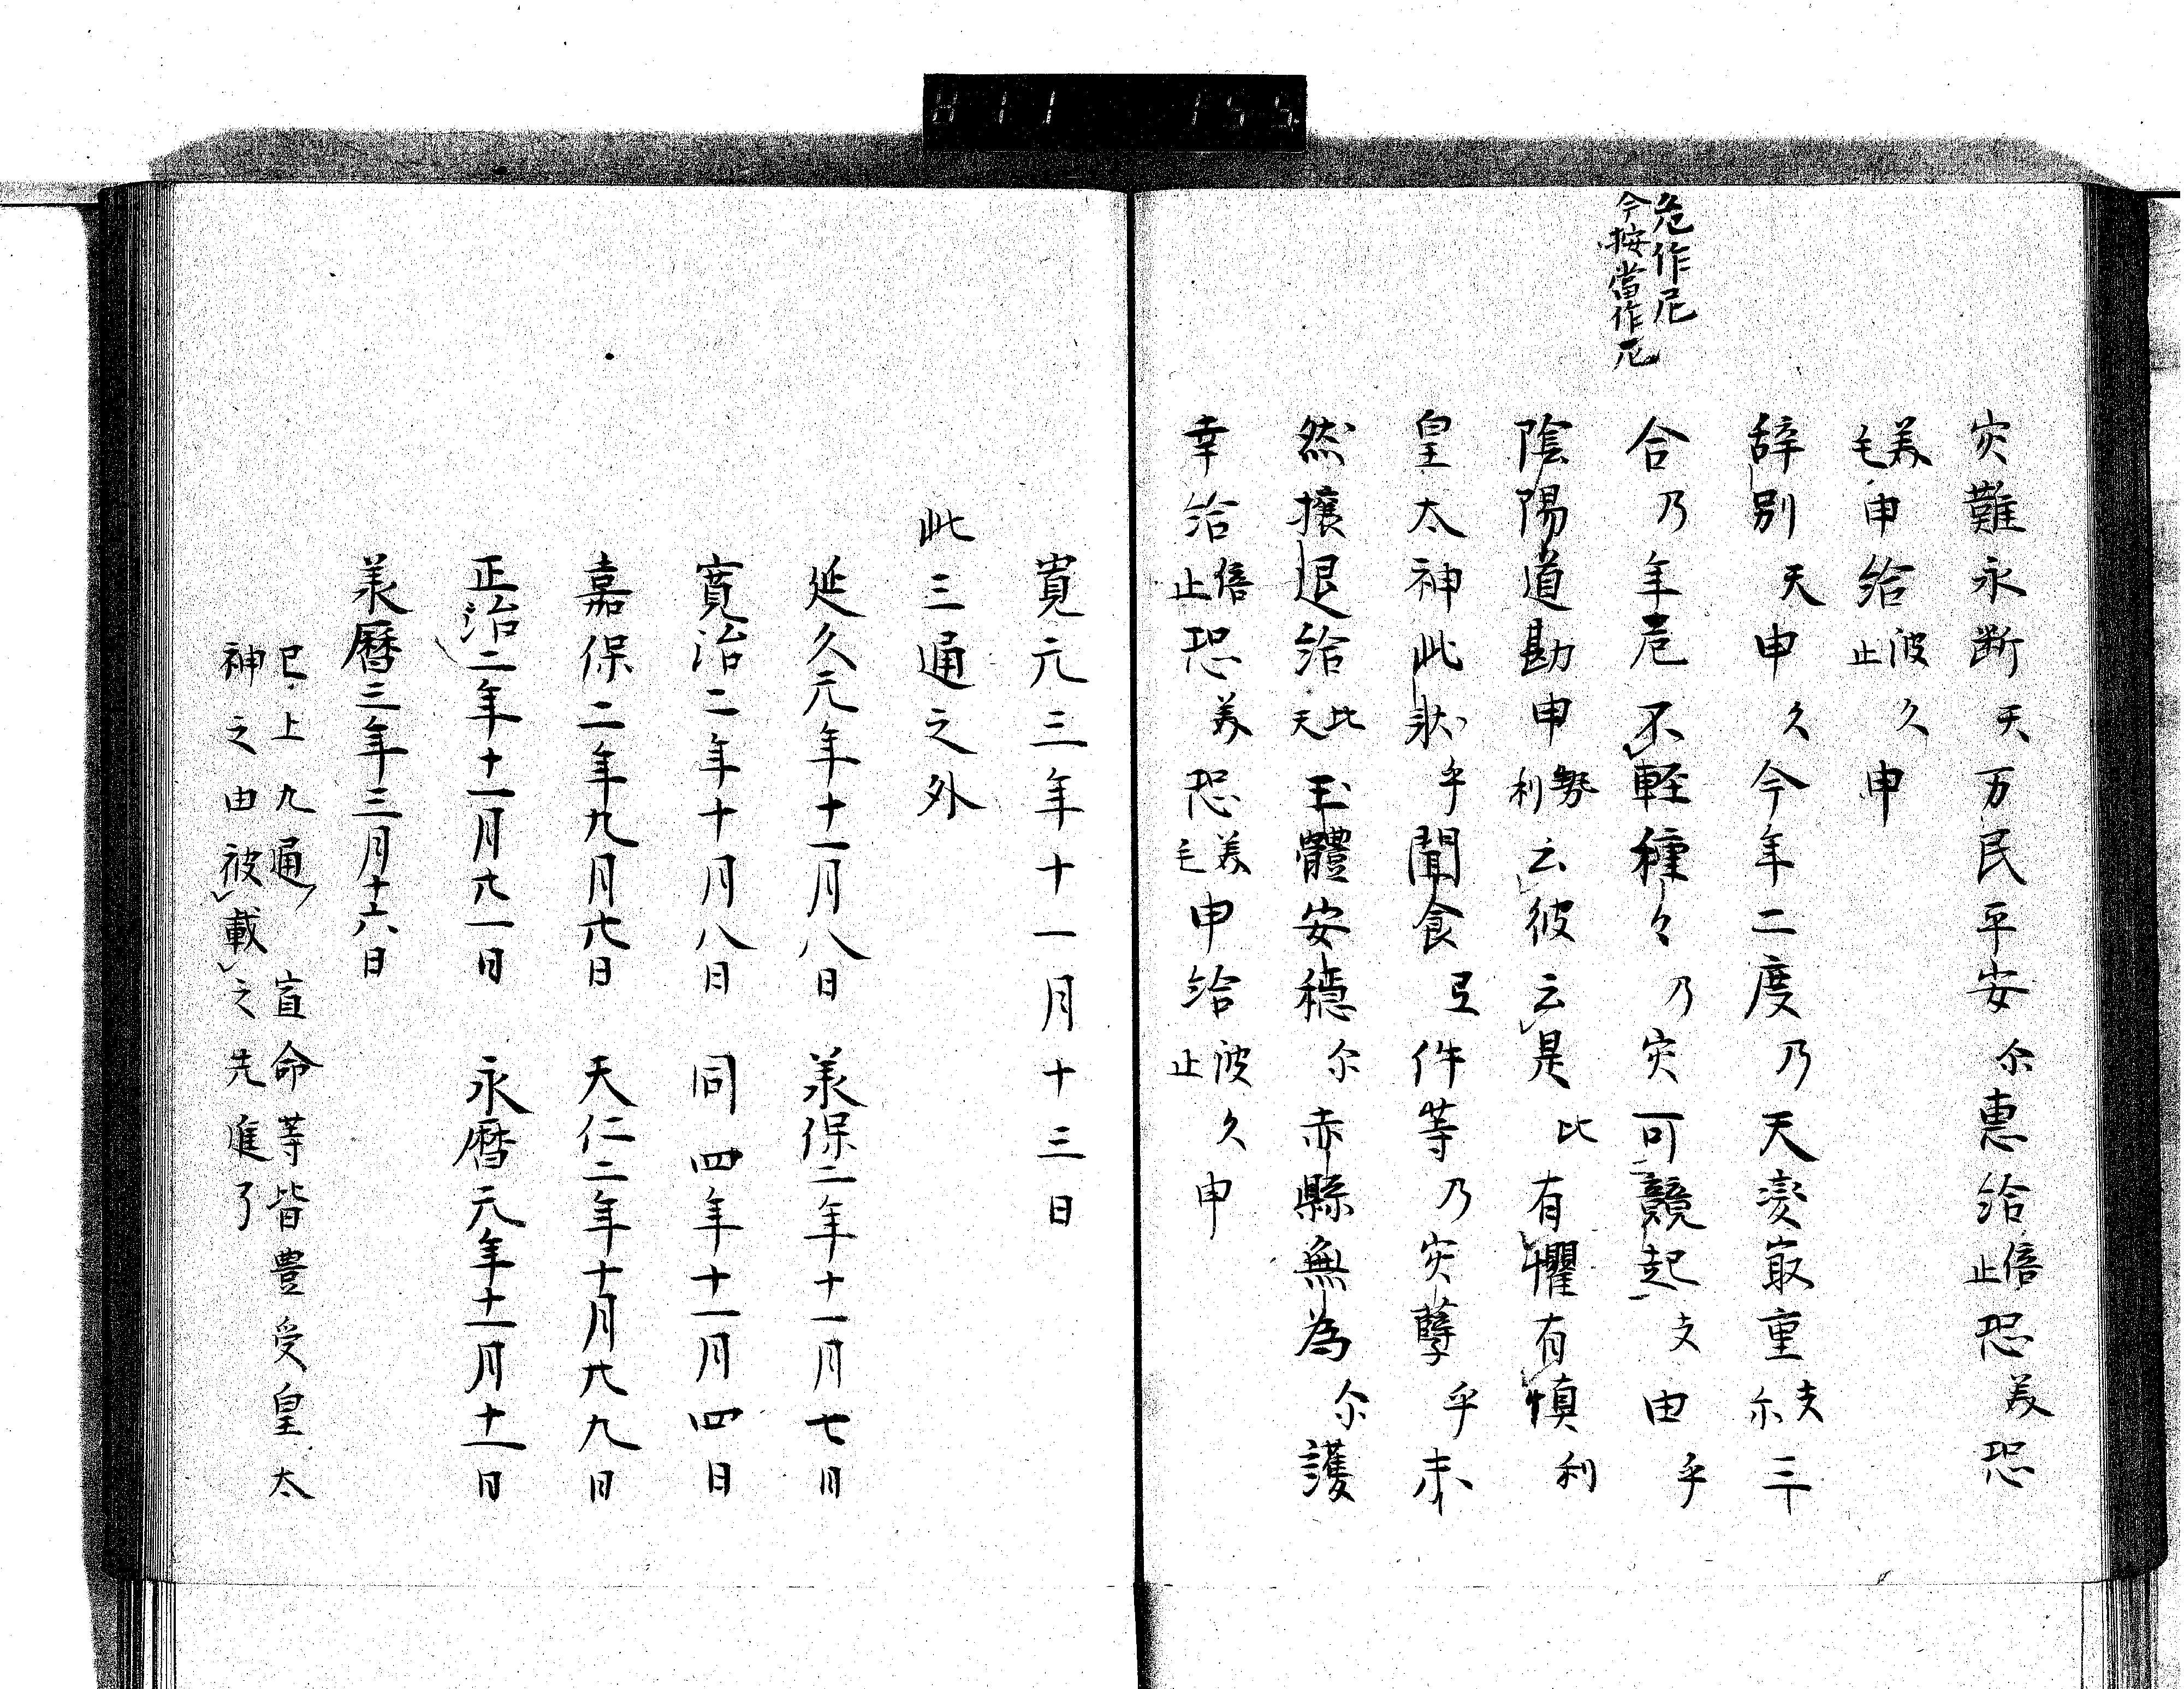 H11 155
危作尼
今按當作厄
灾難永断天万民平安尓恵給倍止恐美恐
美毛申給波止久申
辞別天申久今年二度乃天変㝡重支尓三
合乃年危不軽種々乃灾可競起支由乎
陰陽道勘申勢利云彼云是比有懼有慎利
皇太神此状乎聞食弖件等乃灾孽乎未
然攘退給比天玉體安穏尓赤縣無為尓護
幸給倍止恐美恐美毛申給波止久申
寛元三年十一月十三日
此三通之外
延久元年十一月八日　承保二年十一月七日
寛治二年十月八日　同四年十一月四日
嘉保二年九月廿日　天仁二年十月廿九日
正治二年十一月廿一日　永暦元年十一月十一日
承暦三年三月十六日
已上九通　宣命等皆豊受皇太
神之由被載之先進了